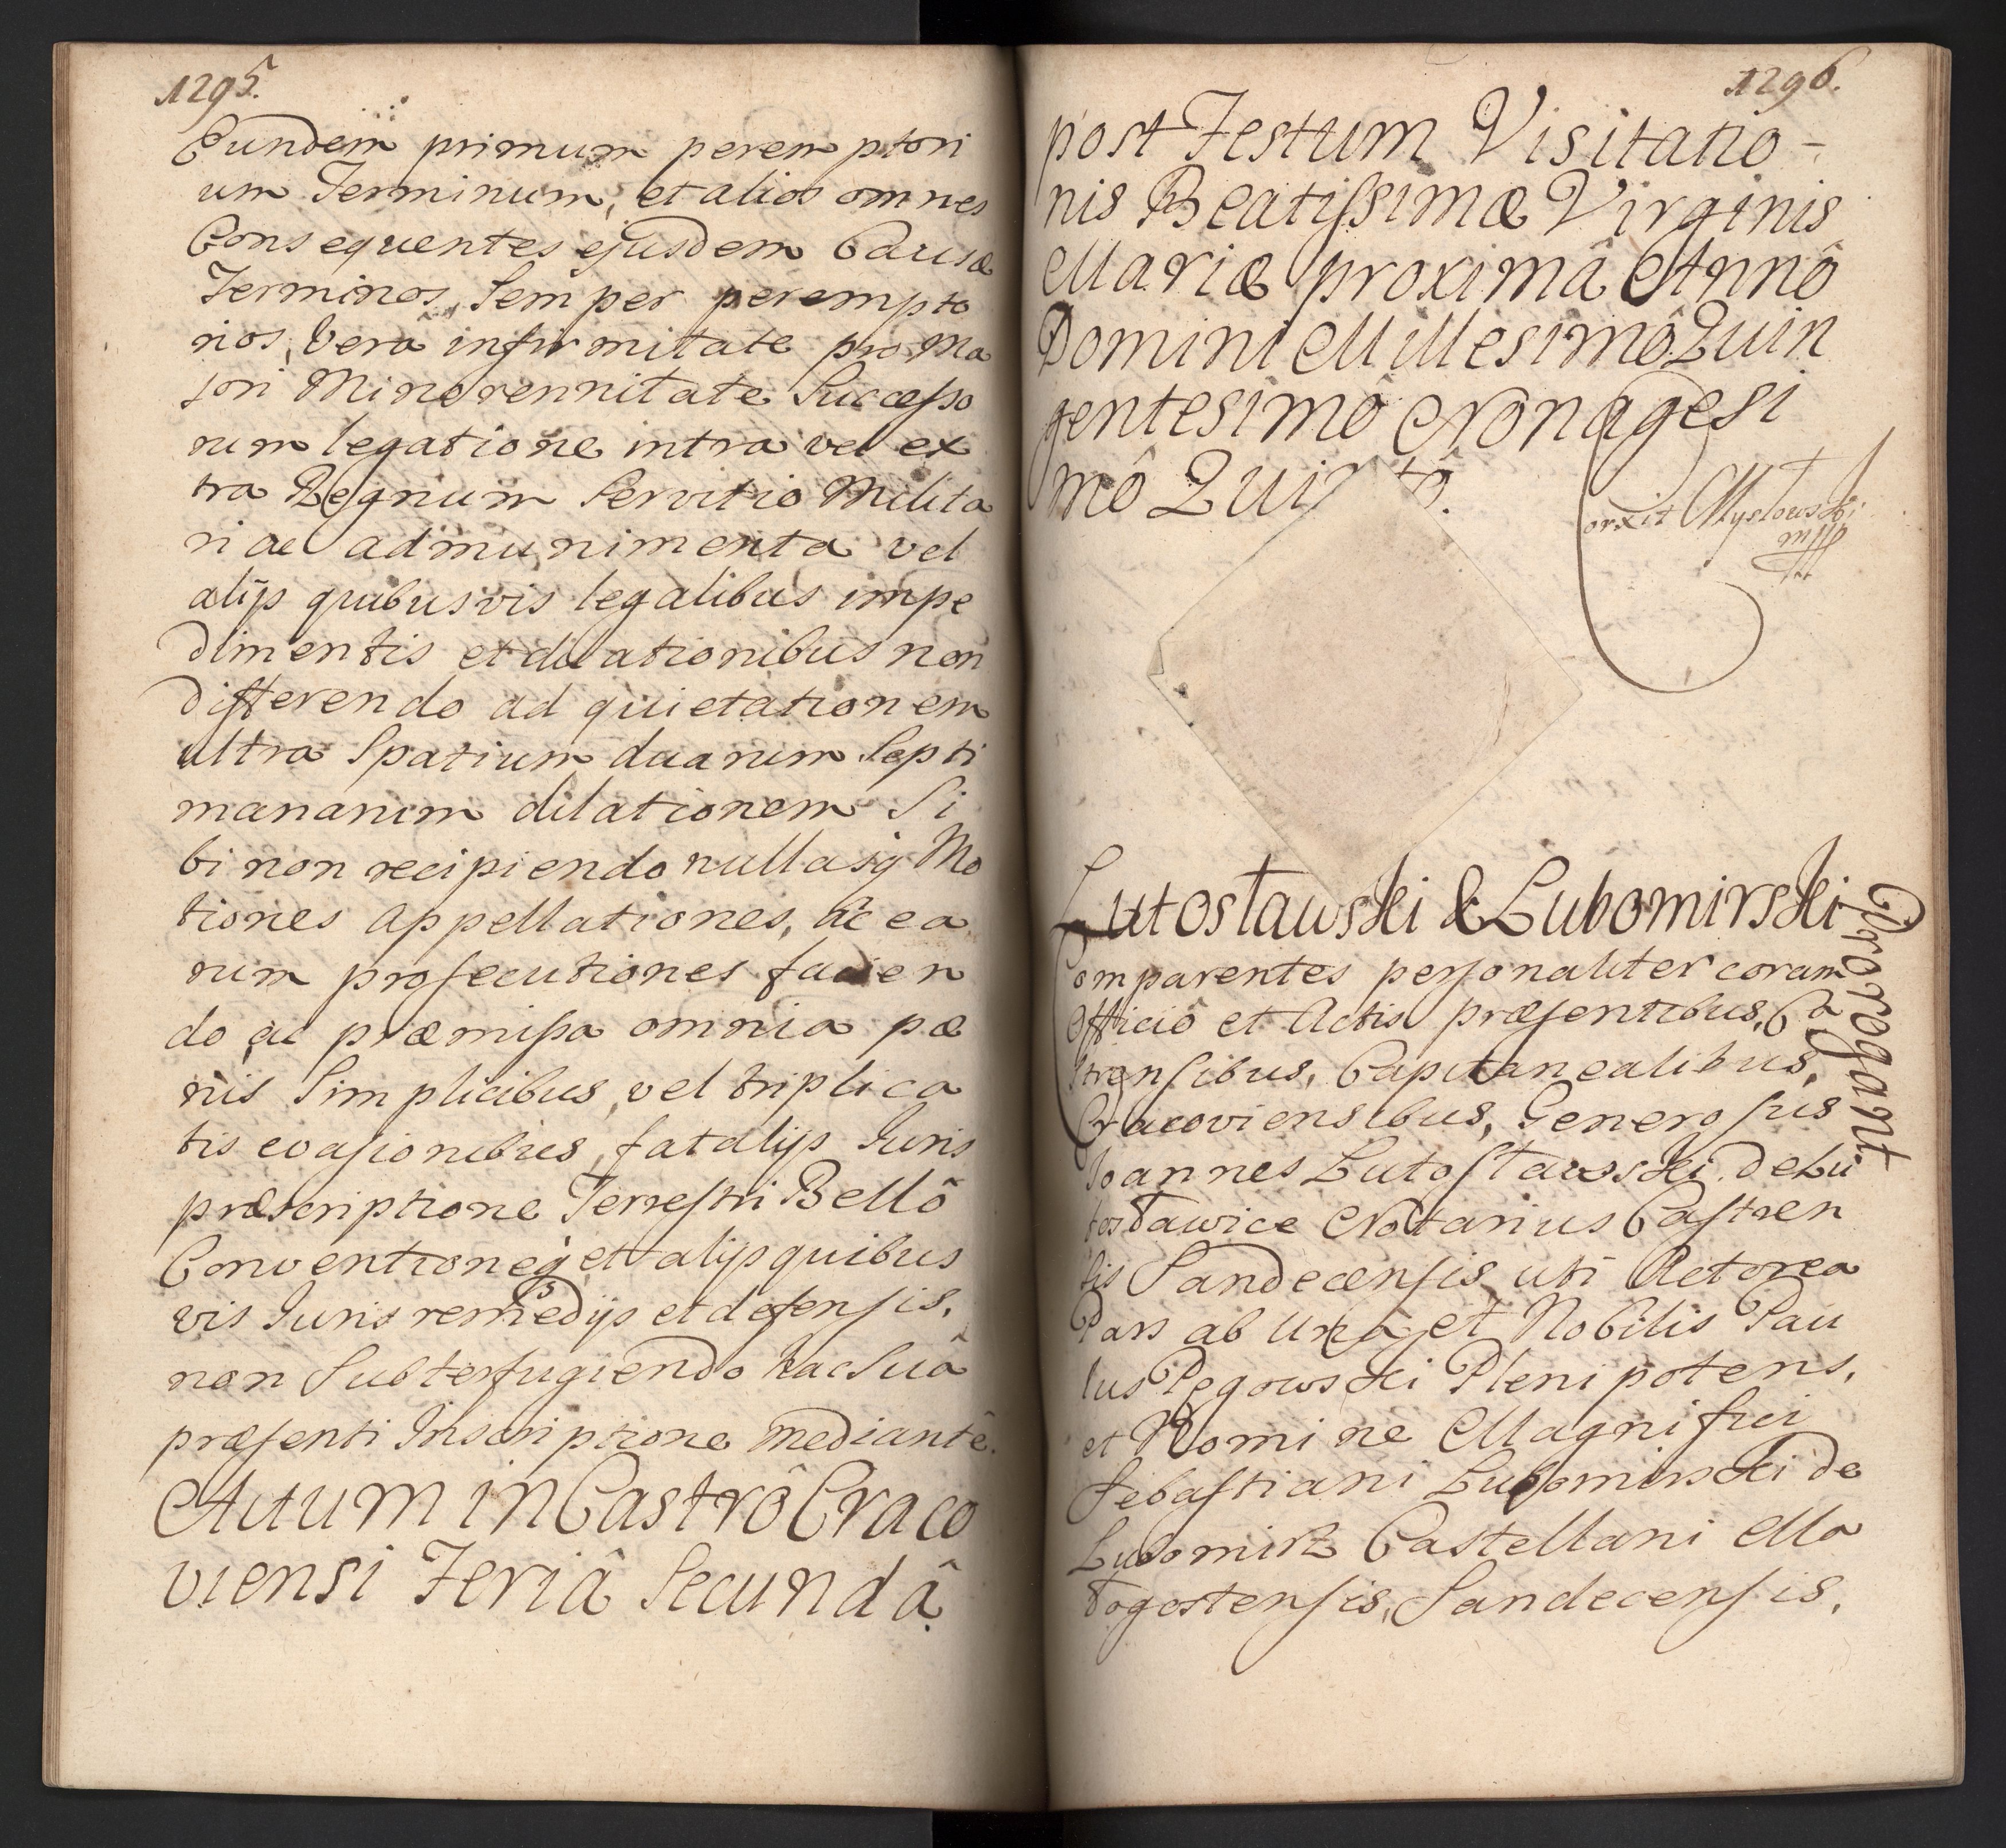 1295.
Eundem primum peremptori
um Terminum, et alios omnes
Consequentes ejusdem Causæ
Terminos, Semper perempto
rios, Vera infirmitate pro Ma
jori Minorennitate Successo
rum legatione intra vel ex
tra Regnum Servitio Milita
ri ac admunimenta vel
alijs quibusvis legalibus impe
dimentis et dilationibus non
differendo ad quietationem
ultra Spatium duarum Septi
manarum dilationem Si
bi non recipiendo nullasq Mo
tiones appellationes, ac ea
rum prosecutiones facien
do ac præmissa omnia pæ
nis Simplicibus, vel triplica
tis evasionibus, fatalijs Juris
præscriptione Terrestri Bellô
Conventioneq et alijs quibus
vis Juris remedijs et defensis,
non Subterfugiendo hac Suâ
præsenti Inscriptione mediante.
Actum in Castrô Craco
viensi Feriâ Secundâ
1296.
post Festum Visitatio-
nis Beatissimæ Virginis
Mariæ proximâ Annô
Domini Millesimô Quin
gentesimô Nonagesi
mô Quintô.
orxit Mysłowski
mpp
Lutosławski & Lubomirski
Prorogant
Comparentes personaliter coram
Officiô et Actis præsentibus, Ca
strensibus, Capitanealibus,
Cracoviensibus, Generosus
Joannes Lutosławski de Lu
tosławice Notarius Castren
sis Sandecensis uti Actorea
Pars ab Una, et Nobilis Pau
lus Pęgowski Plenipotens,
et Nomine Magnifici
Sebastiani Lubomirski de
Lubomirz Castellani Ma
łogostensis, Sandecensis,